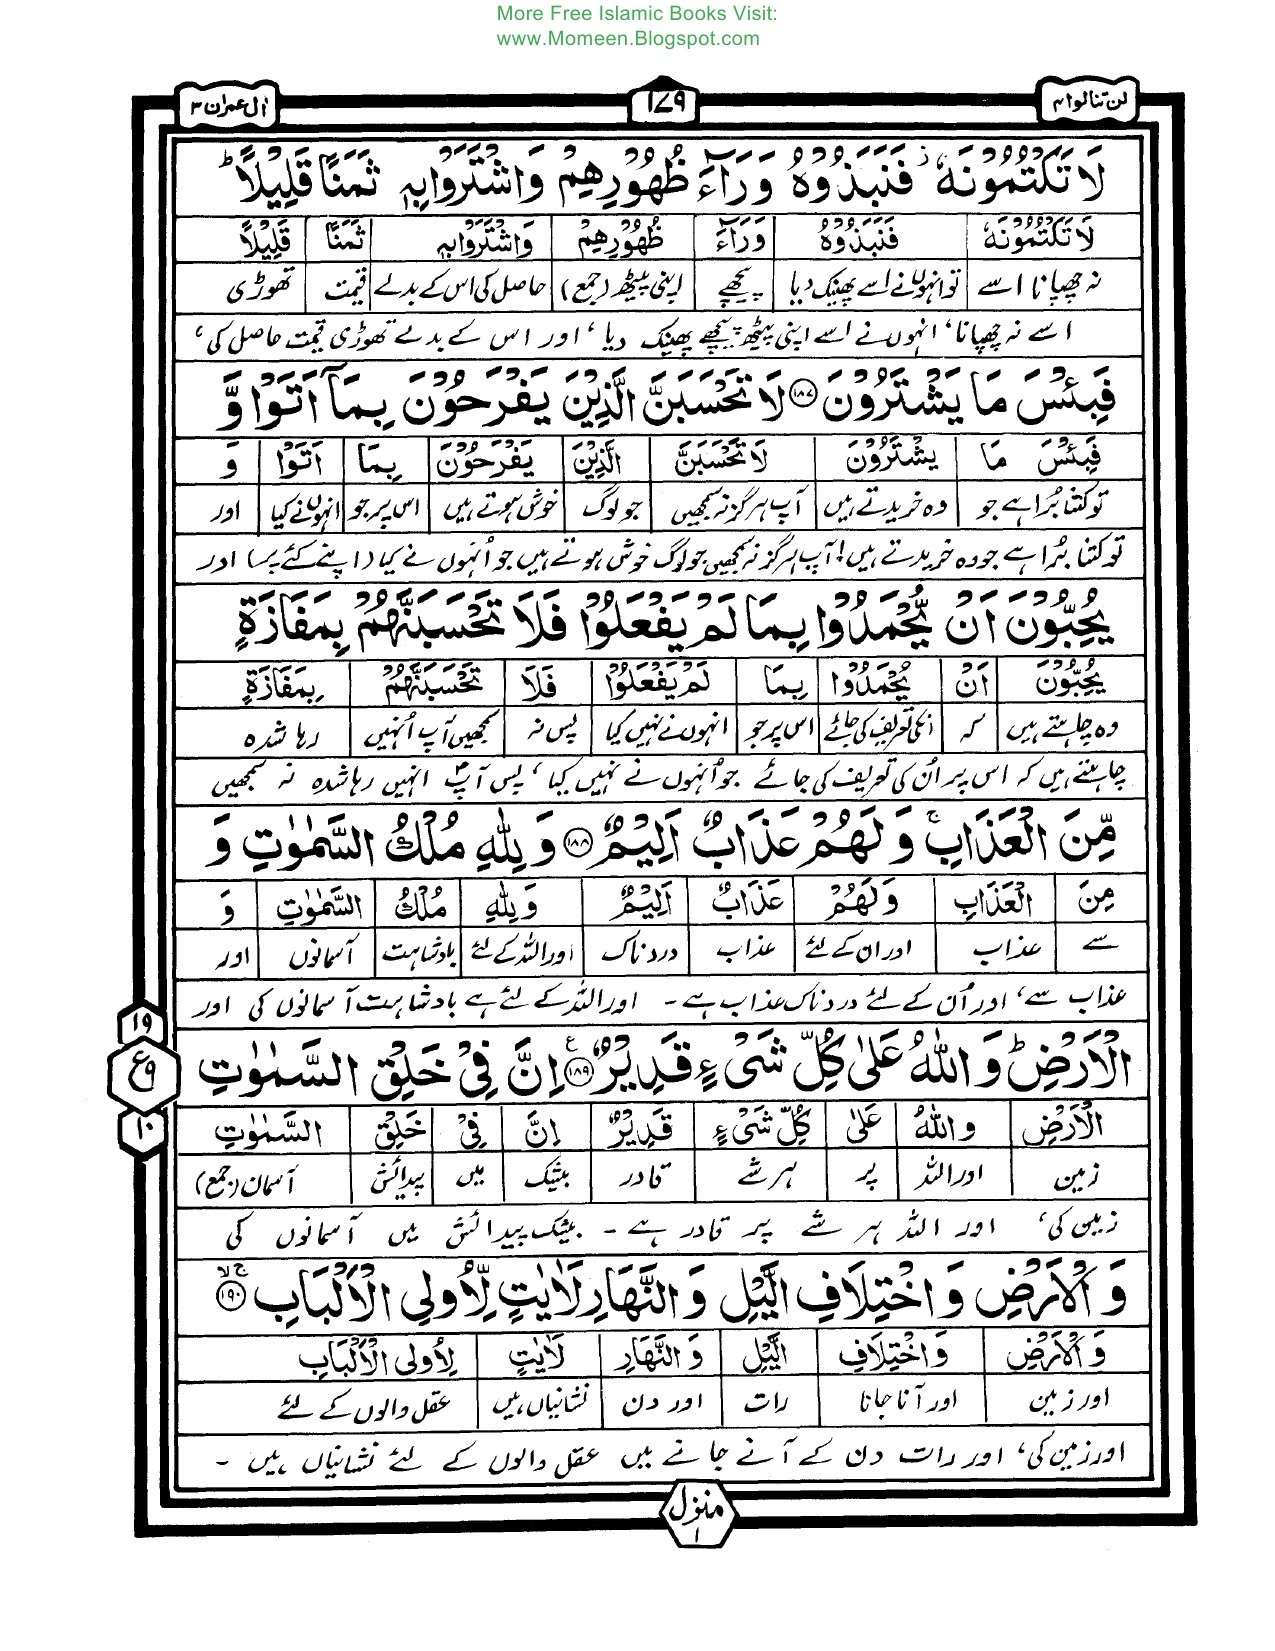 More Free Islamic Books Visit:
www.Momeen.Blogspot.com
لن تنالوا ۴ ۱۷۹ اٰل عمران ۳
لَا تَكْتُمُوْنَهٗ ز فَنَبَذُوْهُ وَرَآءَ ظُهُوْرِهِمْ وَاشْتَرَوْا بِهٖ ثَمَنًا قَلِيْلًا ؕ
لَا تَكْتُمُوْنَهٗ فَنَبَذُوْهُ وَرَآءَ ظُهُوْرِهِمْ وَاشْتَرَوْا بِهٖ ثَمَنًا قَلِيْلًا
نہ چھپانا اسے تو انہوں نے اسے پھینک دیا پیچھے اپنی پیٹھ (جمع) حاصل کی اس کے بدلے قیمت تھوڑی
اسے نہ چھپانا، انہوں نے اسے اپنی پیٹھ پیچھے پھینک دیا، اور اس کے بدلے تھوڑی قیمت حاصل کی،
فَبِئْسَ مَا يَشْتَرُوْنَ ۱۸۷ لَا تَحْسَبَنَّ الَّذِيْنَ يَفْرَحُوْنَ بِمَآ اَتَوْا وَّ
فَبِئْسَ مَا يَشْتَرُوْنَ لَا تَحْسَبَنَّ الَّذِيْنَ يَفْرَحُوْنَ بِمَا اَتَوْا وَ
تو کتنا بُرا ہے جو وہ خریدتے ہیں آپ ہرگز نہ سمجھیں جو لوگ خوش ہوتے ہیں اس پر جو انہوں نے کیا اور
تو کتنا بُرا ہے جو وہ خریدتے ہیں! آپ ہرگز نہ سمجھیں جو لوگ خوش ہوتے ہیں جو اُنہوں نے کیا (اپنے کئے پر) اور
يُحِبُّوْنَ اَنْ يُّحْمَدُوْا بِمَا لَمْ يَفْعَلُوْا فَلَا تَحْسَبَنَّهُمْ بِمَفَازَةٍ
يُحِبُّوْنَ اَنْ يُحْمَدُوْا بِمَا لَمْ يَفْعَلُوْا فَلَا تَحْسَبَنَّهُمْ بِمَفَازَةٍ
وہ چاہتے ہیں کہ انکی تعریف کی جائے اس پر جو انہوں نے نہیں کیا پس نہ سمجھیں آپ اُنہیں رہا شدہ
چاہتے ہیں کہ اس پر اُن کی تعریف کی جائے جو اُنہوں نے نہیں کیا، پس آپؐ انہیں رہا شدہ نہ سمجھیں
مِّنَ الْعَذَابِ ۚ وَلَهُمْ عَذَابٌ اَلِيْمٌ ۱۸۸ وَلِلّٰهِ مُلْكُ السَّمٰوٰتِ وَ
مِنَ الْعَذَابِ وَلَهُمْ عَذَابٌ اَلِيْمٌ وَلِلّٰهِ مُلْكُ السَّمٰوٰتِ وَ
سے عذاب اور ان کے لئے عذاب دردناک اور اللہ کے لئے بادشاہت آسمانوں اور
عذاب سے، اور اُن کے لئے دردناک عذاب ہے۔ اور اللہ کے لئے ہے بادشاہت آسمانوں کی اور
الْاَرْضِ ؕ وَاللّٰهُ عَلٰى كُلِّ شَىْءٍ قَدِيْرٌ ۱۸۹ ع اِنَّ فِىْ خَلْقِ السَّمٰوٰتِ
۱۹
ع ۹
۱۰
الْاَرْضِ وَاللّٰهُ عَلٰى كُلِّ شَىْءٍ قَدِيْرٌ اِنَّ فِىْ خَلْقِ السَّمٰوٰتِ
زمین اور اللہ پر ہر شے قادر بیشک میں پیدائش آسمان (جمع)
زمین کی، اور اللہ ہر شے پر قادر ہے۔ بیشک پیدائش میں آسمانوں کی
وَالْاَرْضِ وَاخْتِلَافِ الَّيْلِ وَالنَّهَارِ لَاٰيٰتٍ لِّاُولِى الْاَلْبَابِ ۱۹۰ ج لا
وَالْاَرْضِ وَاخْتِلَافِ الَّيْلِ وَالنَّهَارِ لَاٰيٰتٍ لِاُولِى الْاَلْبَابِ
اور زمین اور آنا جانا رات اور دن نشانیاں ہیں عقل والوں کے لئے
اور زمین کی، اور رات دن کے آنے جانے میں عقل والوں کے لئے نشانیاں ہیں۔
منزل ۱